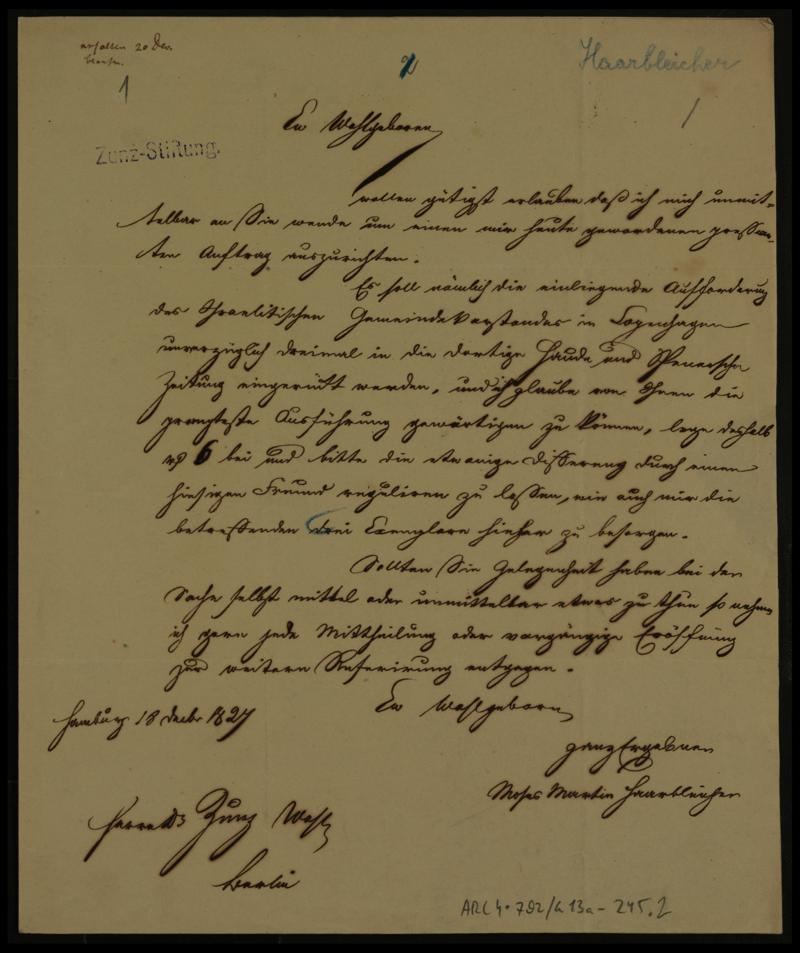 erhalten 20 Dec.
1
2
Haarbleicher
1
Zunz-Stiftung.
Ew Wohlgeboren
wollen gütigst erlauben daß ich mich unmit=
telbar an Sie wende um einen mir heute gewordenen pressan-
ten Auftrag auszurichten.
Es soll nämlich die einliegende Aufforderung
des Israelitischen Gemeindevorstandes in Copenhagen
unverzüglich dreimal in die dortige Haude und Spenersche
Zeitung eingerückt werden, und ich glaube von Ihnen die
prompteste Ausführung gewärtigen zu können, lege deshalb
6 bei und bitte die etwanige Differenz durch einen
hiesigen Freund reguliren zu lassen, wie auch mir die
betreffenden drei Exemplare hieher zu besorgen.
Sollten Sie Gelegenheit haben bei der
Sache selbst mittel oder unmittelbar etwas zu thun so nehme
ich gern jede Mittheilung oder vorgängige Eröffnung
zur weitern Referirung entgegen.
Ew Wohlgeboren
Hamburg 18 Decbr 1827
ganz Ergebener
Moses Martin Haarbleicher
Herrn Dr Zunz Wohlg
Berlin
ARC 4° 792/G 13a - 245.1